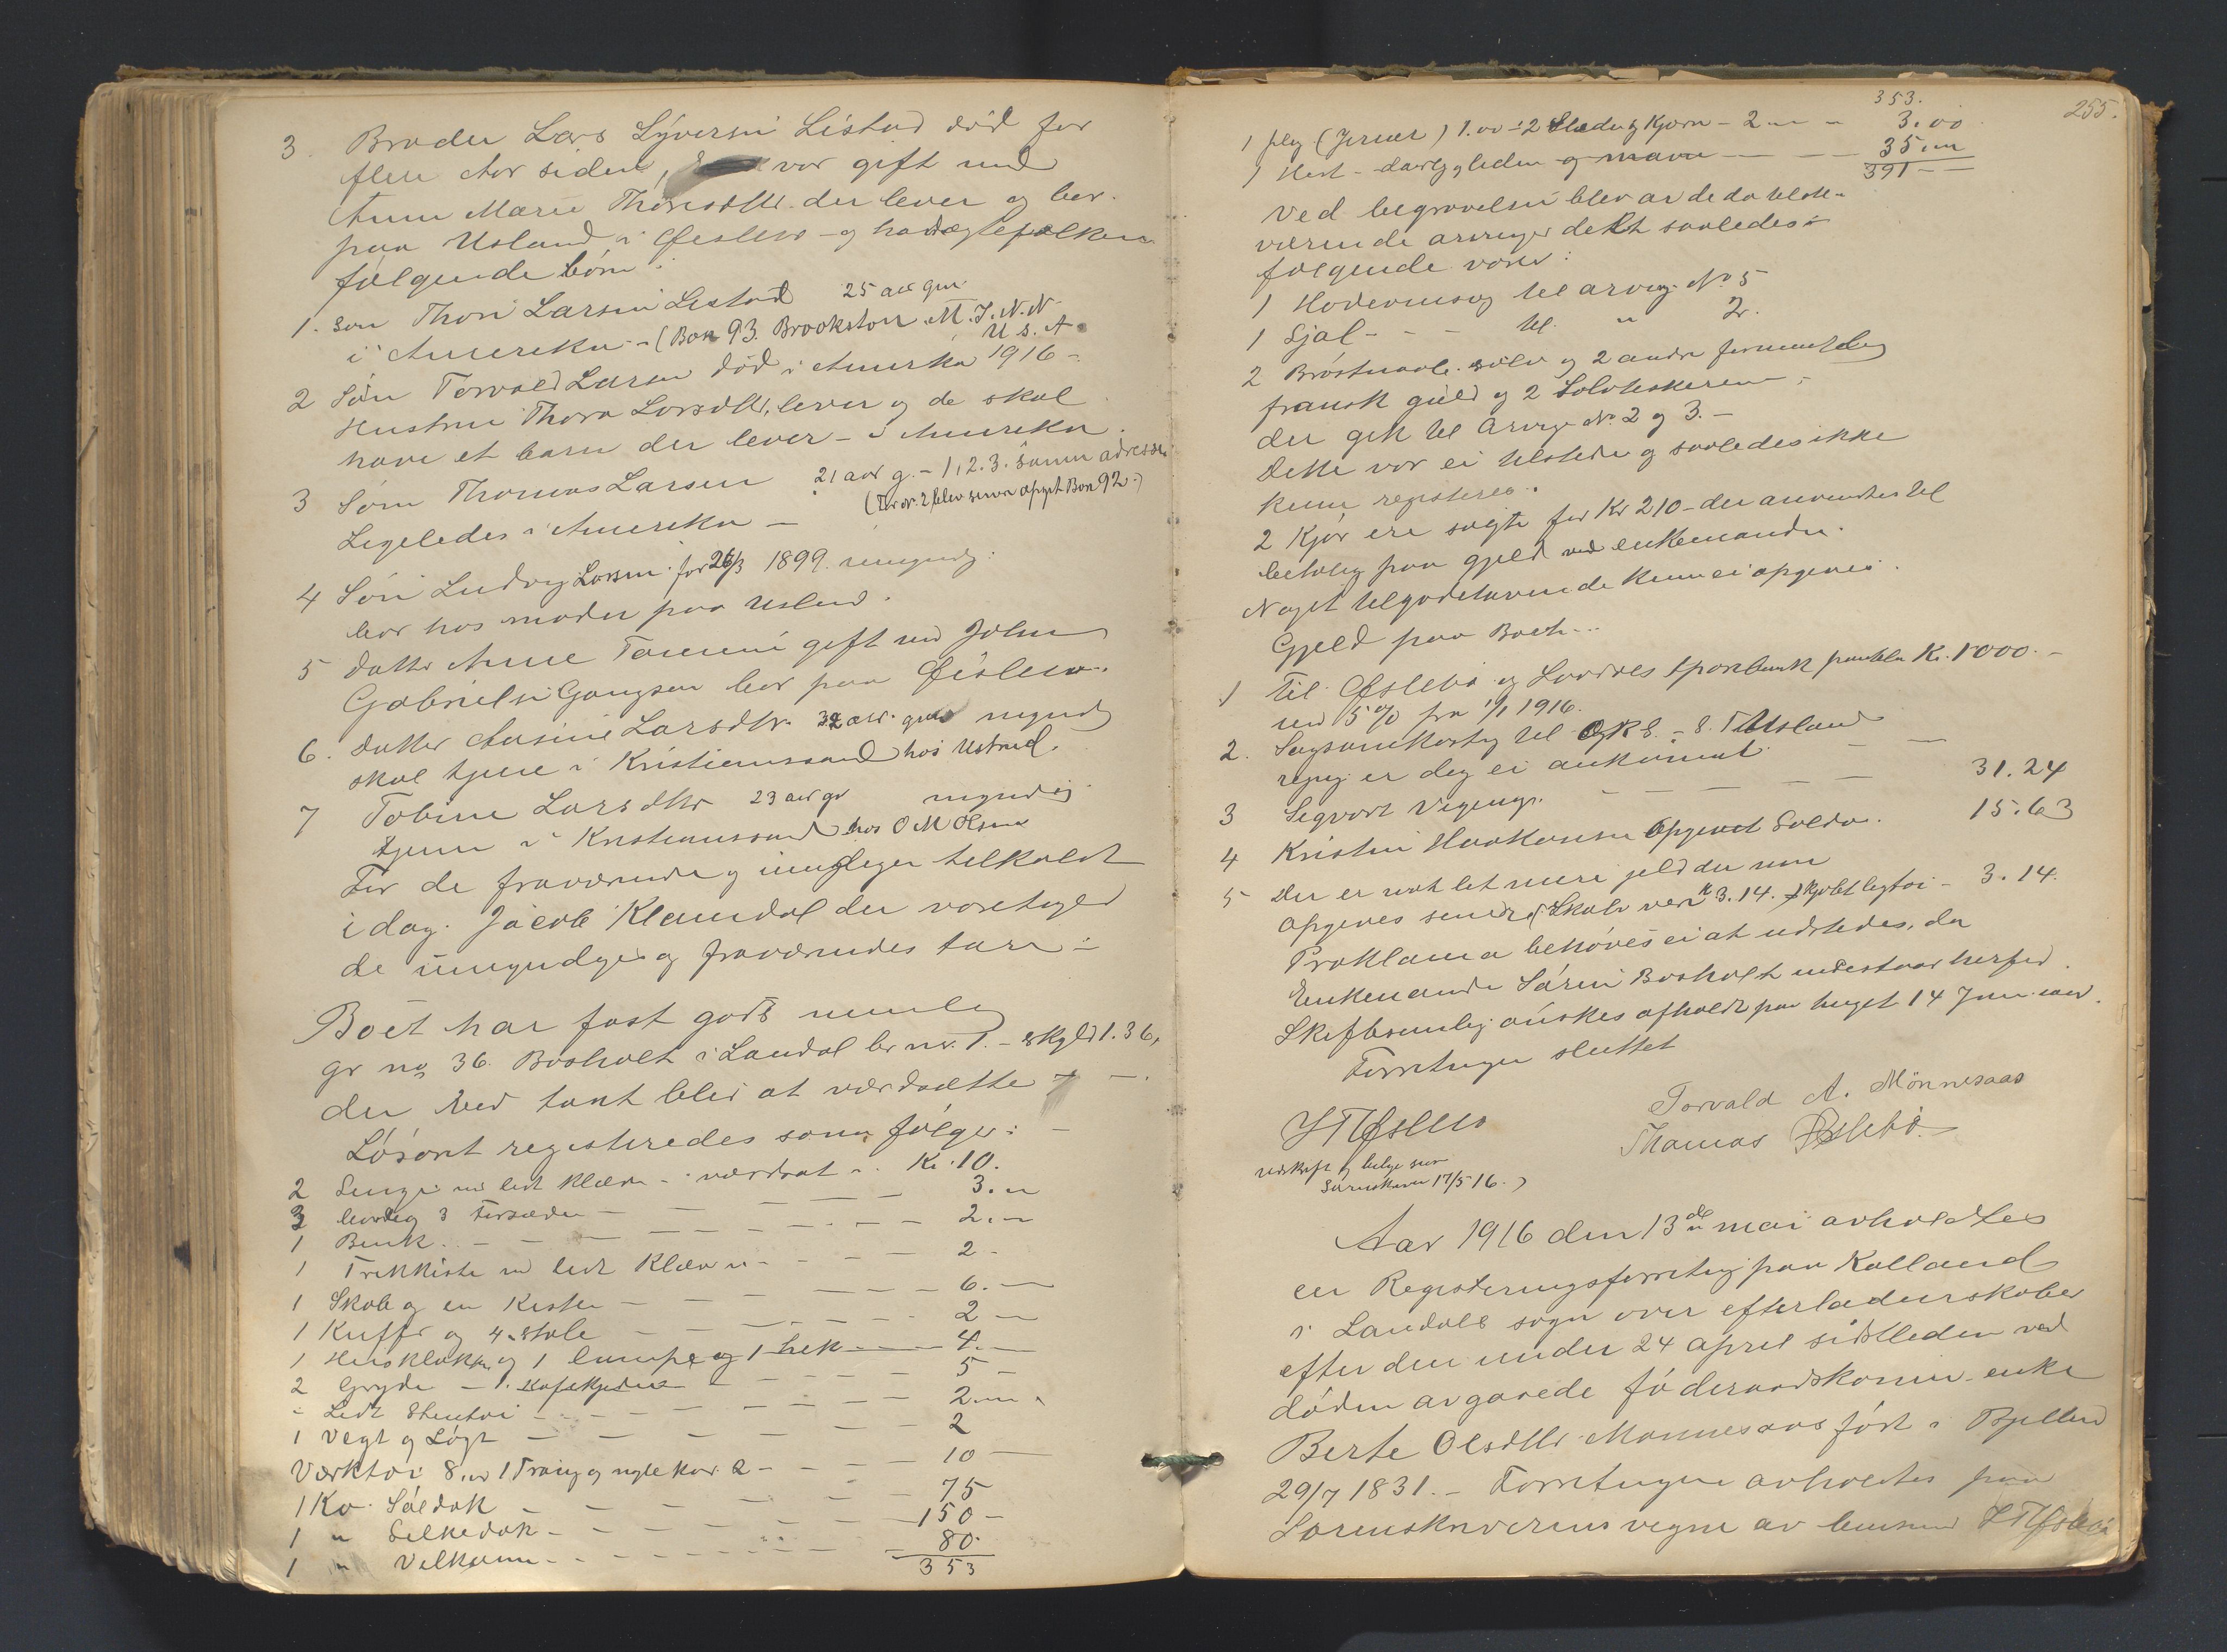 3. Broder Lars Syversen Listad död for
flere Aar siden, var gift med
Anne Marie Thorsdtr. der lever og bor
paa Usland i Øislebö og havde ægtefolkene
følgende børn:
1. Søn Thore Larsen Listad 25 aar gm.
i Amerika - (Box 93. Brookston M.I.N.N.
U.S.A.
2 Søn Torvald Larsen död i Amerika 1916 -
Hustru Thora Larsdtr. lever og de skal
have et barn der lever - i Amerika.
3 Søn Thomas Larsen 21 aar g. - 1, 2. 3. samme adresse
Ligeledes i Amerika - (For nr. 2 blev senere opgit Box 92.)
4 Søn Ludvig Larsen før 26/3 1899. umyndig.
bor hos moder paa Usland.
5 datter Anne Tomine gift med John
Gabrielsen Gangsaa bor paa Øislebö.
6. datter Aasine Larsdtr. 32 aar gm. myndig
skal tjene i Kristianssand hos Ustrud.
7 Tobine Larsdtr 23 aar gl myndig
tjener i Kristianssand hos O M Olsen
For de fraværende og umyndiger tilkaldt
idag. Jacob Klamdal der varetager
de umyndiges og fraværendes tarv :
Boet har fast gods nemlig
gr no 36. Bosholt i Laudal br no. 1. - skyld 1.36,
der ved takst blev at værdsætte
Løsöret registreredes som følger : -
2 Senge med lidt klæder - værdsat - Kr. 10.
3 bord og 3 Forsæder - 3. "
1 Benk. - 2. "
1 Trækkiste med lidt klæder - 2 -
1 Skab og en Kiste - 6. -
1 Kuffer og 4 stole - 2 -
1 Husklokke og 1 lampe og 1 hek - 4. -
2 Gryde - 1. Kafekjedel - 5 -
- Lidt Stentøi - 2. "
1 Vegt og Løgt - 2
Værktøi 8," 1 Traug og nogle kar 2 - 10 -
1 Ko Søldok - 75
1 " Silkedok - 150 -
1 " Velkommen - 80.
353
255.
353.
1 plog (Jernet) 1.00 - 2 Slæder og Kjærn - 2 " - 3.00
1 Hest - daarlig gleden og maven - 35. "
391 -
Ved begravelsen blev av de da tilste-
værende arvinger delt saaledes
følgende varer :
1 Hodevinsag til arving No 5
1 Sjal - til " 2.
2 Bröstnaale sölv og 2 andre formentlig
fransk guld og 2 Sölvteskeer -
der gik til Arvinge No. 2 og 3. -
Dette var ei tilstede og saaledes ikke
kunne registreres.
2 Kjør ere solgte for Kr 210 - der anvendtes til
betaling paa gjeld ved enkemanden.
Noget tilgodehavende kunne ei opgives.
Gjeld paa Boet -
1 Til Øislebö og Laudals sparebank pantelån Kr. 1000. -
med 5 % fra 1/1 1916.
2. Sagsomkostning til O.R.S. - S. T. Usland
regning er deg ei ankommet
3 Segvart Vigeng. - 31. 24
4 Kristen Haakonsen opgivet Saldo. 15. 63
5 Der er nok lit mere gjeld der maa
opgives senere (Skole ved Kr 3. 14. kjøbt ligtøi - 3. 14.
Proklama behöves ei at udstedes, da
Enkemande Sören Bosholt indestaar herfor.
Skiftesamling önskes afholdt paa tinget 14 Juni
Forretningen sluttet
S T Øislebö
Torvald A. Mönnesaas
Thomas Øislebö.
udskrift og bilag sen
Sorenskriver 17/5 16.)
Aar 1916 den 13de mai avholdtes
en Registreringsforretning paa Kolland
i Laudals sogn over efterladenskaber
efter den under 24 april sidstleden ved
döden avgaaede föderaadskone, enke
Berte Olsdtr. Monnesaas født i Bjelland
29/7 1831. - Forretningen avholdtes paa
Sorenskriverens vegne av lensmand S T Øislebö